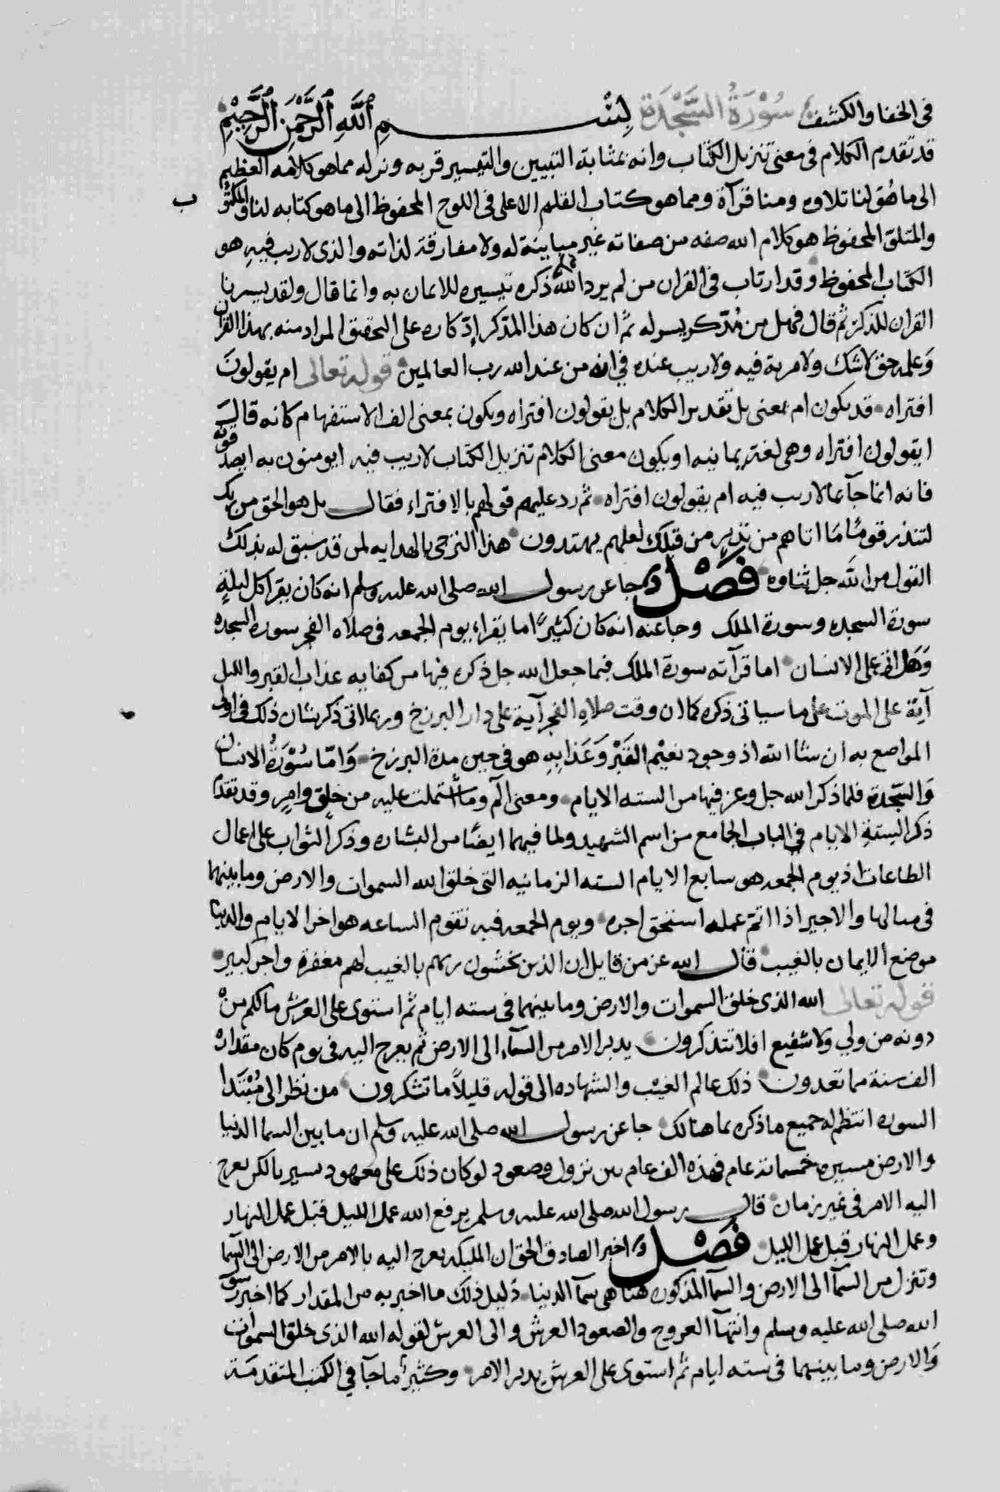 في الخفا والكشف سُوْرَةُ السَّجْدَة بِسْمِ اللَّهِ الرَّحْمَنِ الرَّحِيْمِ
قد تقدم الكلام في معنى تنزيل الكتاب وانه بمثابة التبيين والتيسير قربه ونزله مما هو كلامه العظيم
الى ما هو لنا تلاوه ومنا قرآة ومما هو كتاب القلم الاعلى في اللوح المحفوظ الى ما هو كتابه لنا والمكتوب
والمتلو المحفوظ هو كلام الله صفه من صفاته غير مباينة له ولا مفارقة لذاته والذى لا ريب فيه هو
الكتاب المحفوظ وقد ارتاب في القران من لم يرد الله ذكره تيسيره للايمان به وانما قال ولقد يسرنا
القران للذكر ثم قال فهل من مُدّكر يسر له ثم ان كان هذا المدّكر إدّكاره على التحقيق المراد منه بهذا القران
وَعلمه حق لا شك ولا مرية فيه ولا ريب عنده في انه من عند الله رب العالمين قوله تعالى ام يقولون
افتراه قد يكون ام بمعنى بل تقدير الكلام بل يقولون افتراه ويكون بمعنى الف الاستفهام كانه قال
ايقولون افتراه وهي لغة يمانيه او يكون معنى الكلام تنزيل الكتاب لا ريب فيه ايومنون به ايصدقونه
فانه انما جآ بما لا ريب فيه ام يقولون افتراه ثم رد عليهم قولهم بالافتراء فقال بل هو الحق من ربك
لتنذر قومًا مَا اتاهم من نذيرٍ من قبلك لعلهم يهتدون هذا الترجي بالهدايه لمن قد سبق له بذلك
القول من الله جل ثناوه فَصْل جا عن رسول الله صلى الله عليه وسلم انه كان يقرا كل ليلةٍ
سورة السجده وسورة الملك وجا عنه انه كان كثيرًا ما يقراء يوم الجمعه في صلاه الفجر سوره السجده
وَهَل اتى على الانسان اما قرآته سورة الملك فيما جعل الله جل ذكره فيها من كفايه عذاب القبر والليل
آية على الموت على ما سياتى ذكره كما ان وقت صلاه الفجر آية على دار البرزخ وربما اتى ذكر شان ذلك في اولى
المواضع به ان شا الله اذ وجود نعيْم القَبْر وَعَذَابِهِ هو في حين مدة البرزخ وَامّا سُوْرَةُ الانسان
وَالسّجدة فلما ذكر الله جل وعز فيها من السته الايام ومعنى الَم وما اشتملت عليه من خلقٍ وامرٍ وقد تقدم
ذكر الستةِ الايام في الباب الجامع من اسم الشهيد ولما فيهما ايضًا من البشاره وذكر الثواب على اعمال
الطاعات اذ يوم الجمعه هو سابع الايام السته الزمانيه التى خلق الله السموات والارض وما بينهما
في مسالها والاجير اذا اتم عمله استحق اجره ويوم الجمعه فيه تقوم الساعه هو اخر الايام والدنيا
موضع الايمان بالغيب قال الله عز من قايل ان الذين يخشون ربهم بالغيب لهم مغفرة واجر كبير
قوله تعالى الله الذى خلق السموات والارض وما بينهما في سته ايام ثم استوى على العرش ما لكم من
دونه من ولي ولا شفيع افلا تتذكرون يدبر الامر من السمآء الى الارض ثم يعرج اليه في يوم كان مقداره
الف سنة مما تعدون ذلك عالم الغيب والشهاده الى قوله قليلاً ما تشكرون من نظر الى مُبْتَدا
السوره انتظم له جميع ما ذكره بما هنالك جا عن رسول الله صلى الله عليه وسلم ان ما بين السما الدنيا
والارض مسيره خمسمائة عام فهذه الف عام بين نزول وصعود لو كان ذلك على معهود سير بالكن يعرج
اليه الامر في غير زمان قال رسول الله صلى الله عليه وسلم يرفع الله عمل الليل قبل عمل النهار
وعمل النهار قبل عمل الليل فَصْل اخبر الصادق الحق ان الملئكه يعرج اليه بالامر من الارض الى السما
وتنزل من السمآ الى الارض والسمآ المذكوره هنا هي سمآ الدنيا دَليل ذلك ما اخبر به من المقدار كما اخبر رسول
الله صلى الله عليه وسلم وانتهآ العروج والصعود العرش والى العرش لقوله الله الذى خلق السموات
وَالارض وما بينهما في سته ايام ثم استوى على العرش يدبر الامر وكثيرًا ما جآ في الكتب المتقدمة